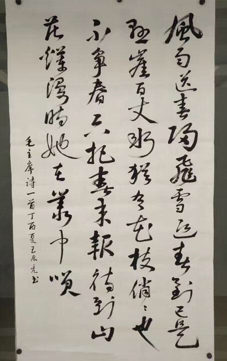 風雨送春歸飛雪迎春到已是
懸崖百丈冰猶有花枝俏俏也
不爭春只把春來報待到山
花爛漫時她在叢中笑
毛主席诗一首丁酉夏